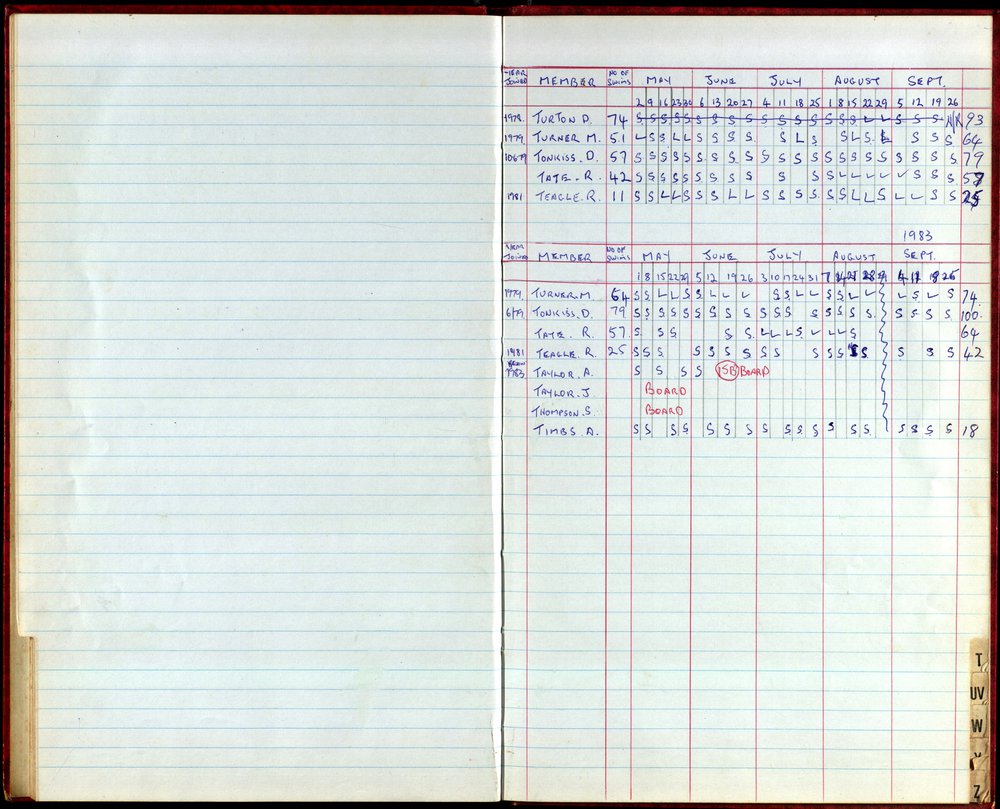 YEAR JOINED MEMBER NO OF SWIMS MAY JUNE JULY AUGUST SEPT.
2 9 16 23 30 6 13 20 27 4 11 18 25 1 8 15 22 29 5 12 19 26
1978. TURTON D. 74 S S S S S S S S S S S S S S S S L L S S S 93
1979 TURNER M. 51 L S S L L S S S S S L S S L S L S S S 64
TONKISS. D. 57 S S S S S S S S S S S S S S S S S S S S S S 79
TATE. R. 42 S S S S S S S S S S S S L L L L L S S S
1981 TEAGLE. R. 11 S S L L S S S L L S S S S S S L L S L L S S 25
1983
YEAR JOINED MEMBER NO OF SWIMS MAY JUNE JULY AUGUST SEPT.
1 8 15 22 29 5 12 19 26 3 10 17 24 31 7 14 21 28 4 11 18 25
1979. TURNER. M. 64 S S L L S S L L L S S L L S S L L L S L S 74.
6/79 TONKISS. D. 79 S S S S S S S S S S S S S S S S S S S S S S 100.
TATE. R. 57. S S S S S L L L S L L L S 64
1981 TEAGLE. R. 25 S S S S S S S S S S S S S S S S S S 42
1983 TAYLOR. A. S S S S 15B BOARD
TAYLOR. J. BOARD
THOMPSON. S. BOARD
TIMBS. A. S S S S S S S S S S S S S S S S S S 18
T
UV
W
Z